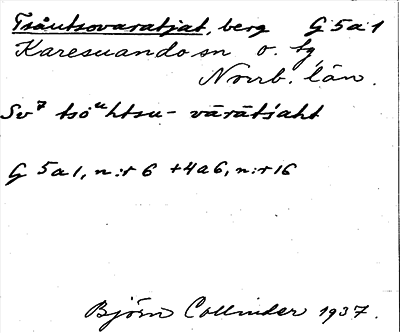 Tsåutsovaratjat, berg G 5 a 1
Karesuando sn o. tg
Norrb. län.
Sv⁷ tsoᵘhtsu- vārātśaht
G 5a1, n:r 6 + 4a6, n:r 16
Björn Collinder 1937.